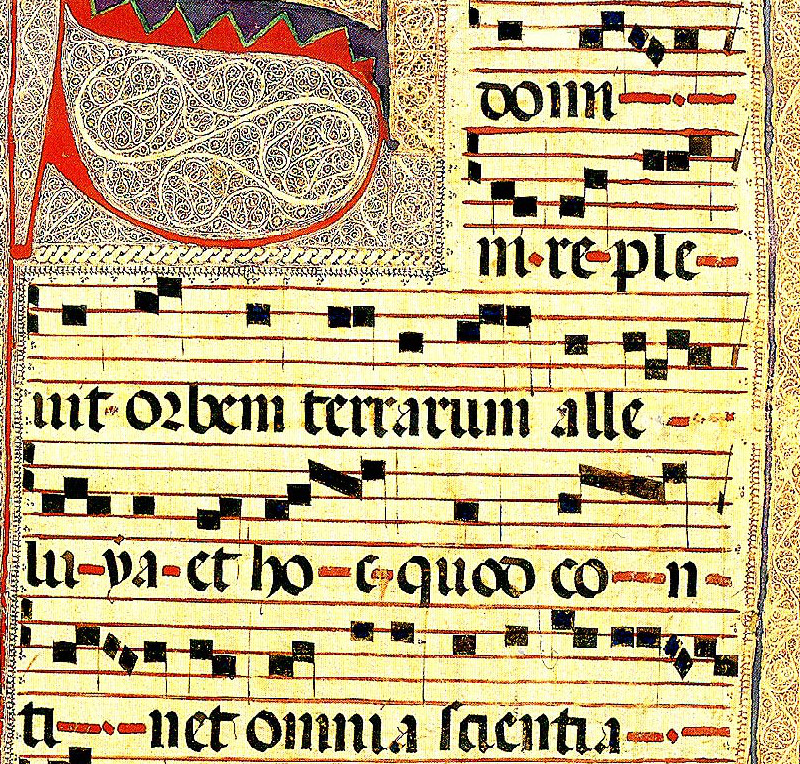 domi
ni reple
uit orbem terrarum alle
luya et hoc quod con
tinet omnia scientia